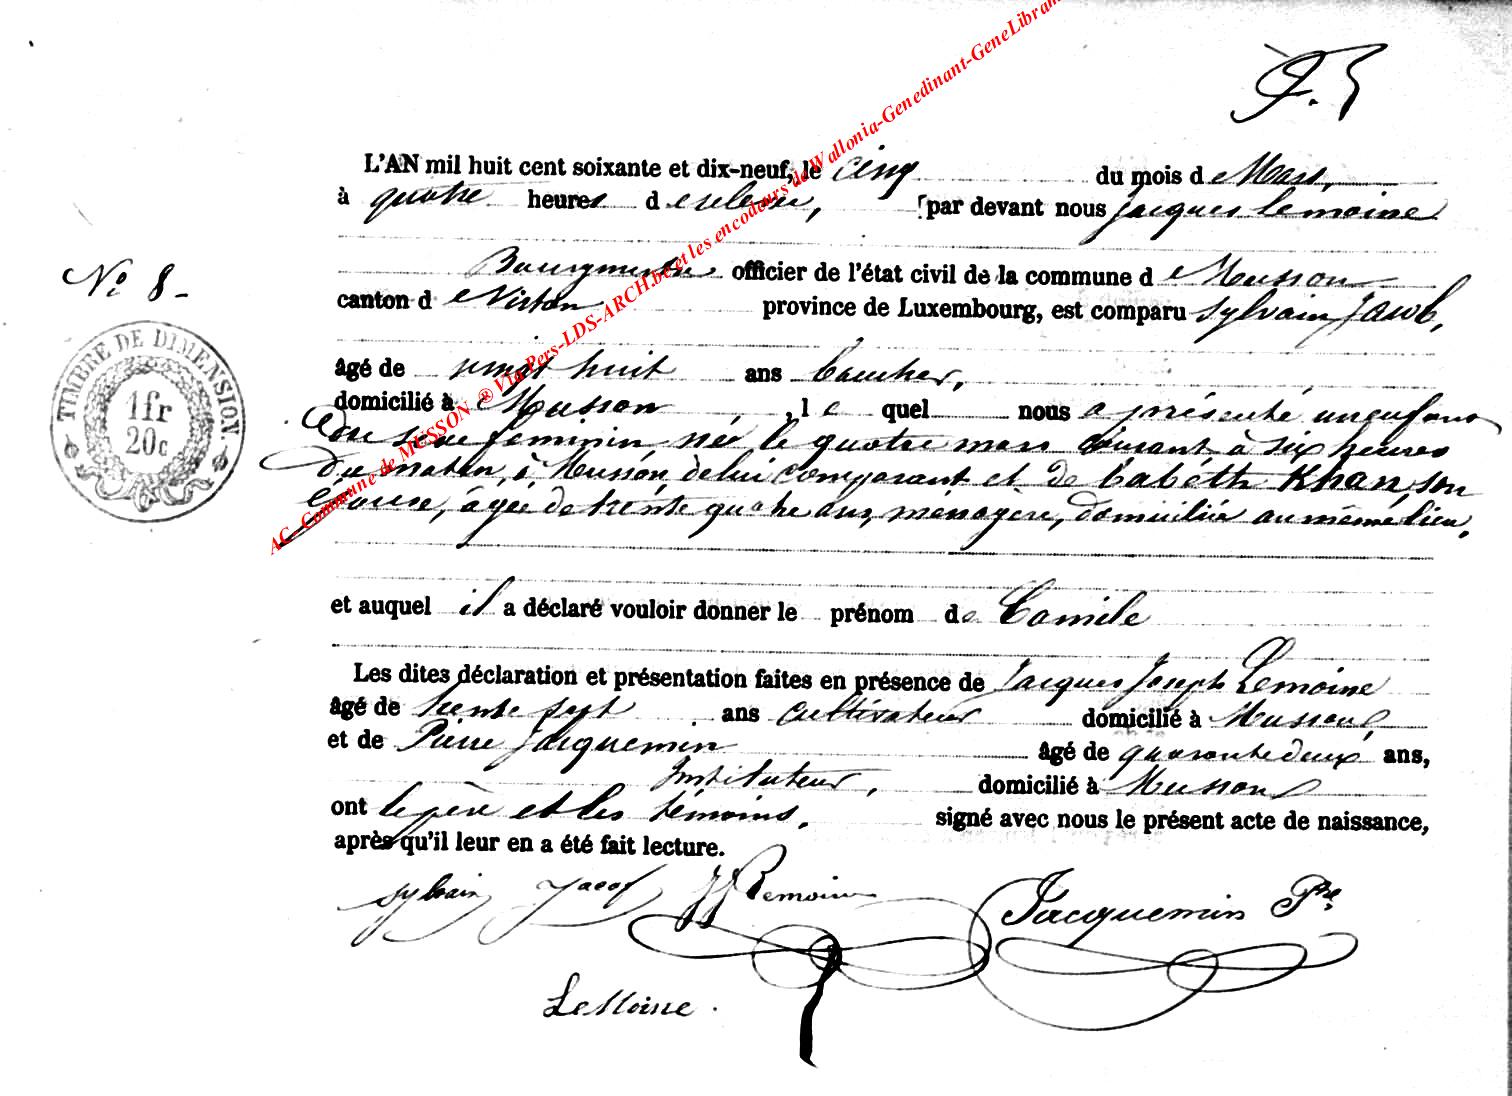 F. 5
L'AN mil huit cent soixante et dix-neuf, le cinq du mois de Mars,
à quatre heures de relevée, par devant nous Jacques Lemoine
Bourgmestre officier de l'état civil de la commune de Musson
N° 8 -
canton de Virton province de Luxembourg, est comparu Sylvain Jacob,
TIMBRE DE DIMENSION.
1fr
20c
âgé de vingt huit ans boucher,
domicilié à Musson, lequel nous a présenté un enfant
du sexe féminin née le quatre mars courant à six heures
du matin, à Musson, de lui comparant et de Babéth Khan, son
épouse, âgée de trente quatre ans, ménagère, domiciliée au même lieu.
et auquel il a déclaré vouloir donner le prénom de Camile
Les dites déclaration et présentation faites en présence de Jacques Joseph Lemoine
âgé de trente sept ans cultivateur domicilié à Musson,
et de Pierre Jacquemin âgé de quarante deux ans,
Instituteur, domicilié à Musson
ont le père et les témoins, signé avec nous le présent acte de naissance,
après qu'il leur en a été fait lecture.
Sylvain Jacob JJLemoine Jacquemin Pre
LeMoine.
AC Commune de MUSSON ® Via Pers-LDS-ARCH.be et les encodeurs de Wallonia-Genedinant-GeneLibran